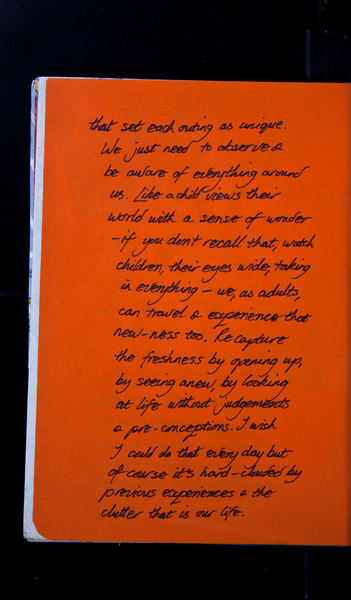 that set each outing as unique.
We just need to observe &
be aware of everything around
us. Like a child views their
world with a sense of wonder
- if you don't recall that, watch
children, their eyes wide, taking
in everything - we, as adults,
can travel & experience that
new-ness too. Recapture
the freshness by opening up,
by seeing anew, by looking
at life without judgements
& pre-conceptions. I wish
I could do that every day but
of course it's hard - clouded by
previous experiences & the
clutter that is our life.